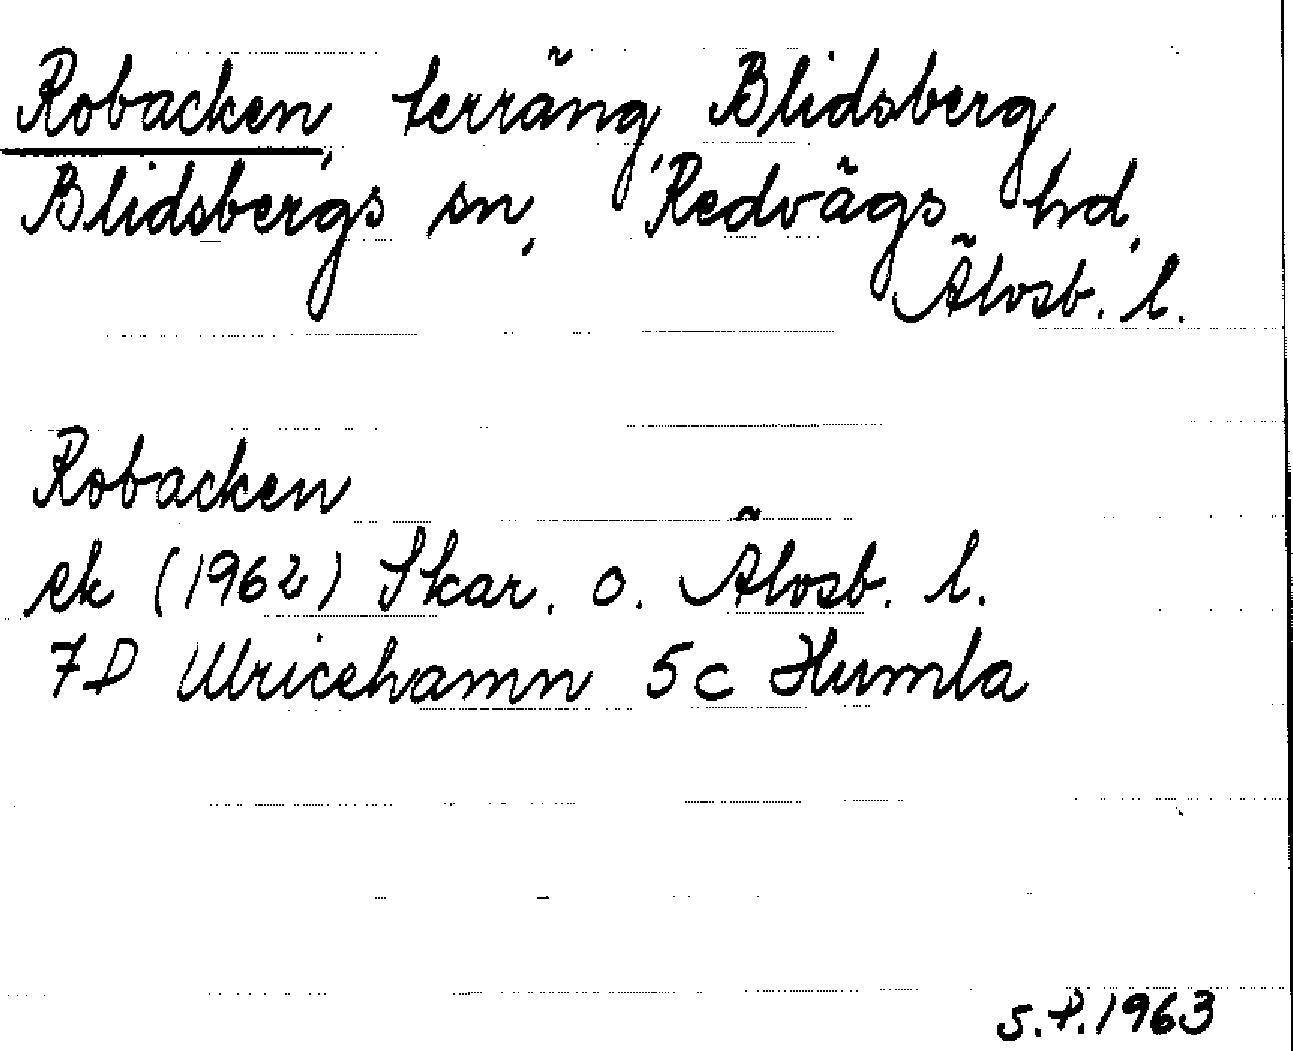 Robacken, terräng, Blidsberg,
Blidsbergs sn, Redvägs hd,
Älvsb. l.
Robacken
ek (1962) Skar. o. Älvsb. l.
7D Ulricehamn 5c Humla
S.P. 1963